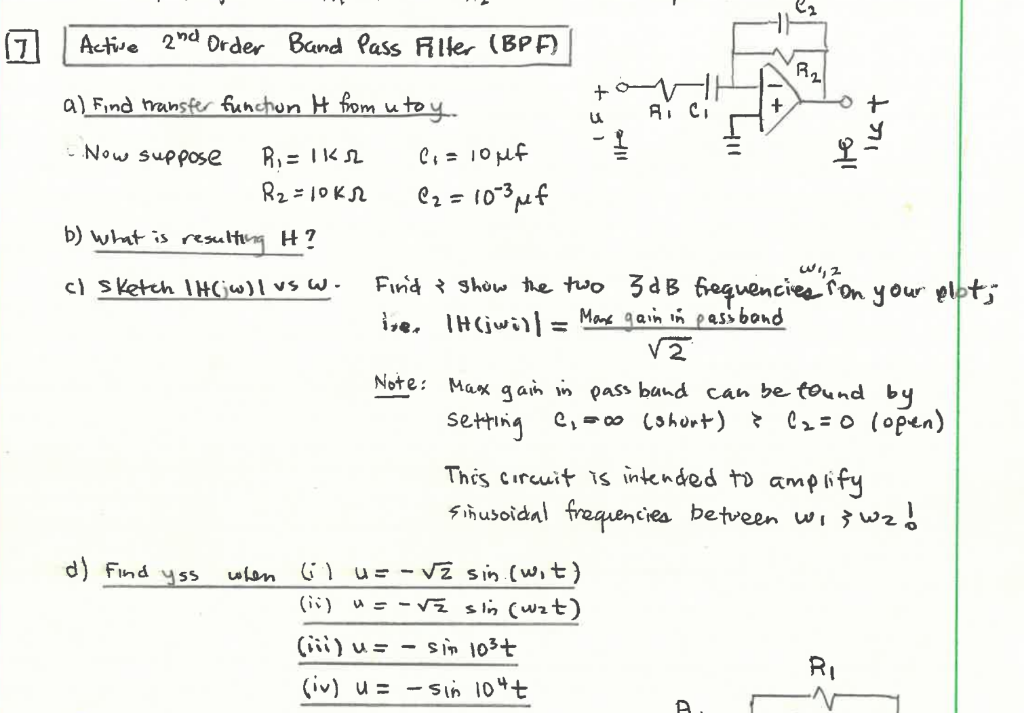 7 Active 2nd Order Band Pass Filter (BPF)
C2
R2
+ u -
R1 C1
- +
+ y -
a) Find transfer function H from u to y.
Now suppose R1 = 1KΩ C1 = 10 μf
R2 = 10KΩ C2 = 10^-3 μf
b) What is resulting H?
c) Sketch |H(jω)| vs ω. Find & show the two 3dB frequencies ω1,2 on your plot;
i.e. |H(jωi)| = Max gain in passband / √2
Note: Max gain in pass band can be found by
setting C1 = ∞ (short) & C2 = 0 (open)
This circuit is intended to amplify
sinusoidal frequencies between ω1 & ω2!
d) Find yss when (i) u = -√2 sin (ω1t)
(ii) u = -√2 sin (ω2t)
(iii) u = - sin 10^3t
(iv) u = - sin 10^4t
R1